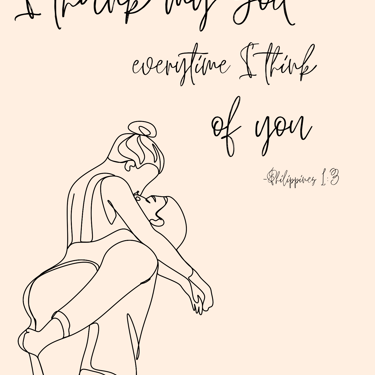 I thank my God
everytime I think
of you
-Philippines 1:3